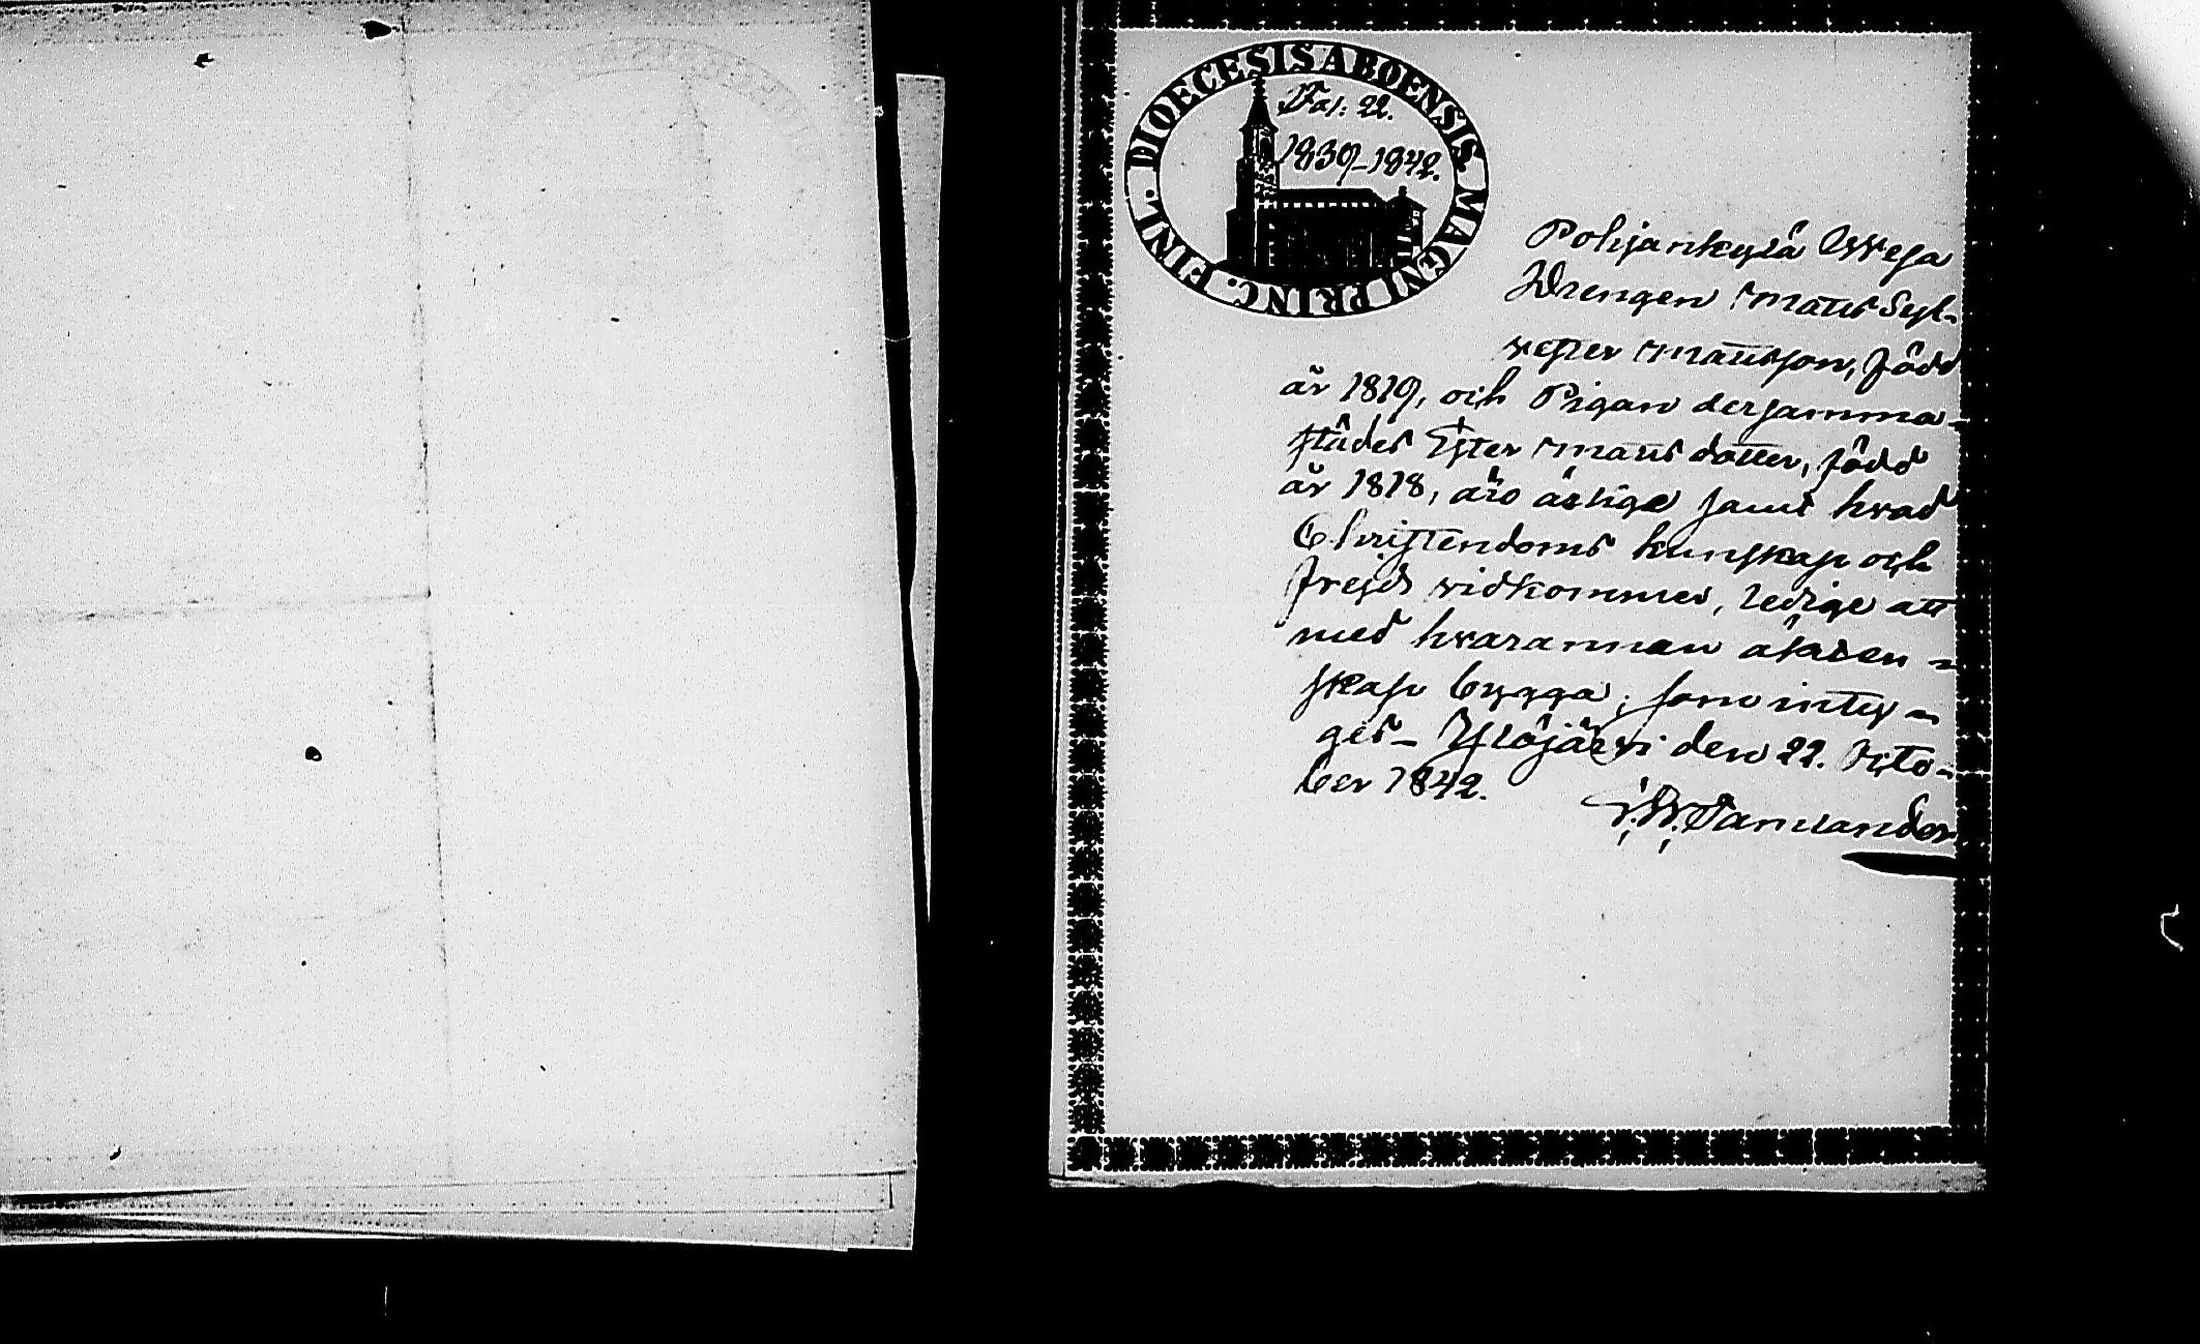 DIOECESIS ABOENSIS MAGNI PRINC. FINL.
Fol: 22.
1839-1842.
Pohjankylä Ofvesa
Drengen Matts Syl-
vester Mattsson, född
år 1819, och Pigan dersamma-
städes Ester Matts dotter, född
år 1818, äro ärlige samt hvad
Christendoms kunskap och
frejd vidkommer, ledige att
med hvarannan äkten-
skap bygga; som inty-
gas_ Ylöjärvi den 22. Octo-
ber 1842.